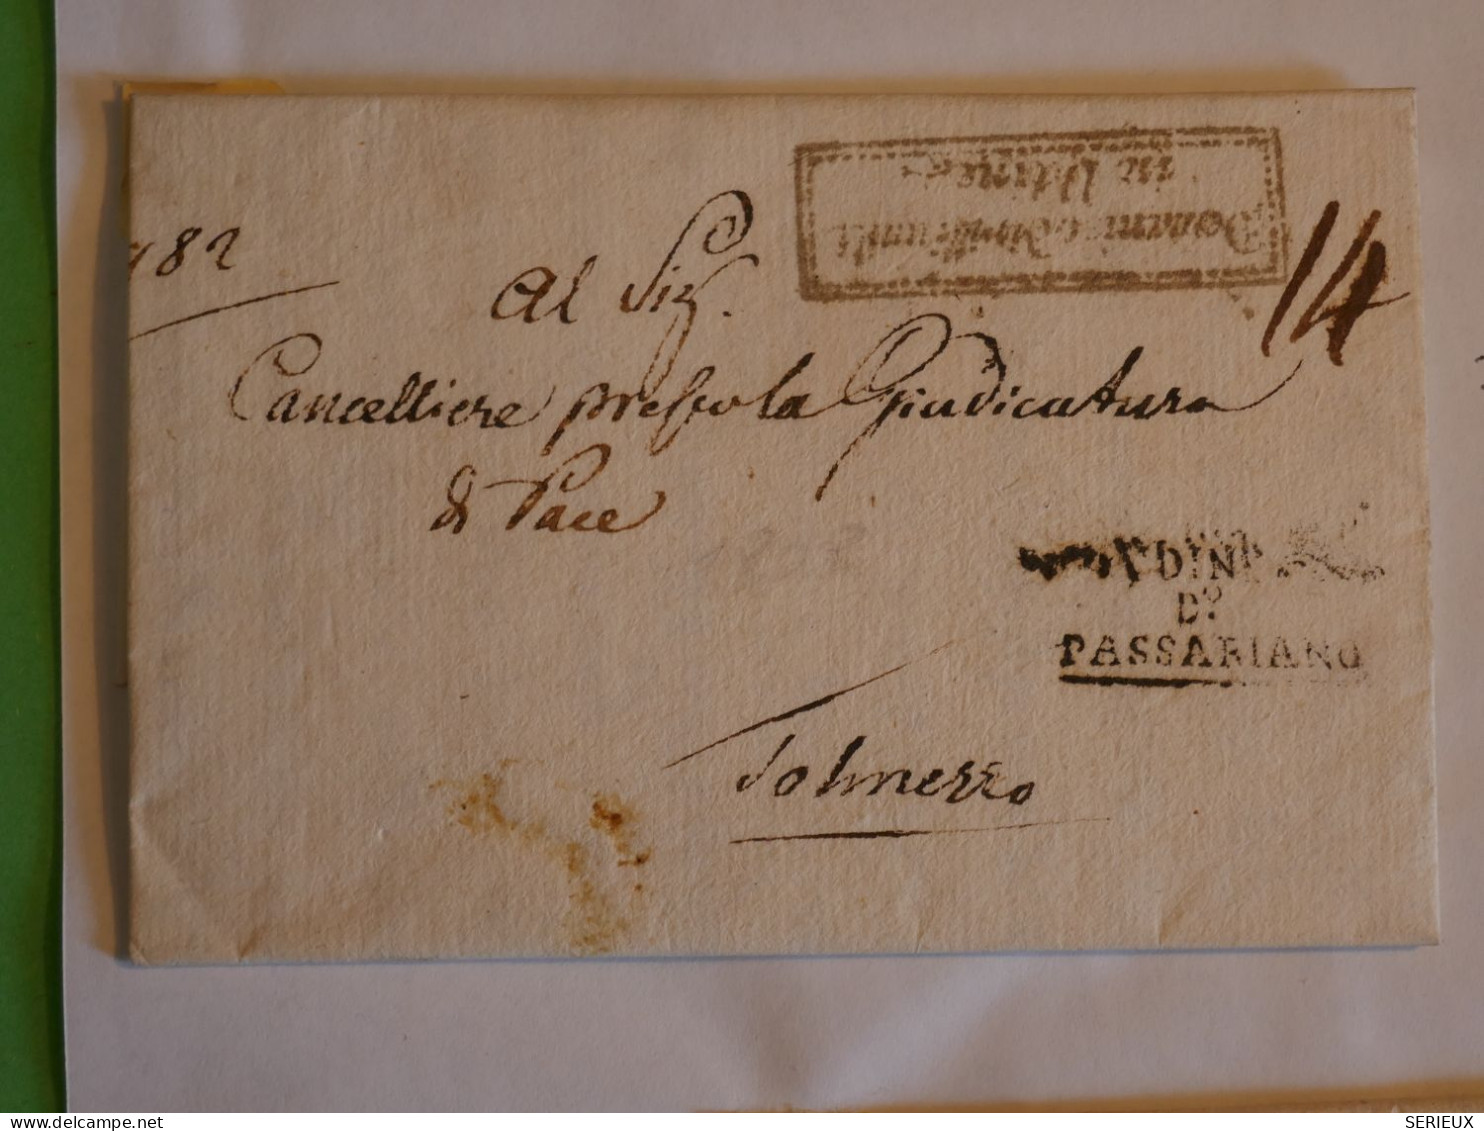 182
Al Sig.
14
Cancelliere presso la Giudicatura
di Pace
UDINE
D.º
PASSARIANO
Tolmezzo
in Udine
SERIEUX